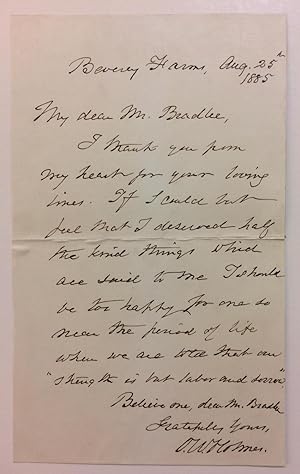 Beverly Farms, Aug. 25th
1885
My dear Mr. Bradlee,
I thank you from
my heart for your loving
lines. If I could but
feel that I deserved half
the kind things which
are said to me I should
be too happy for one so
near the period of life
when we are told that our
"strength is but labor and sorrow."
Believe me, dear Mr. Bradlee
Gratefully Yours,
O. W. Holmes.